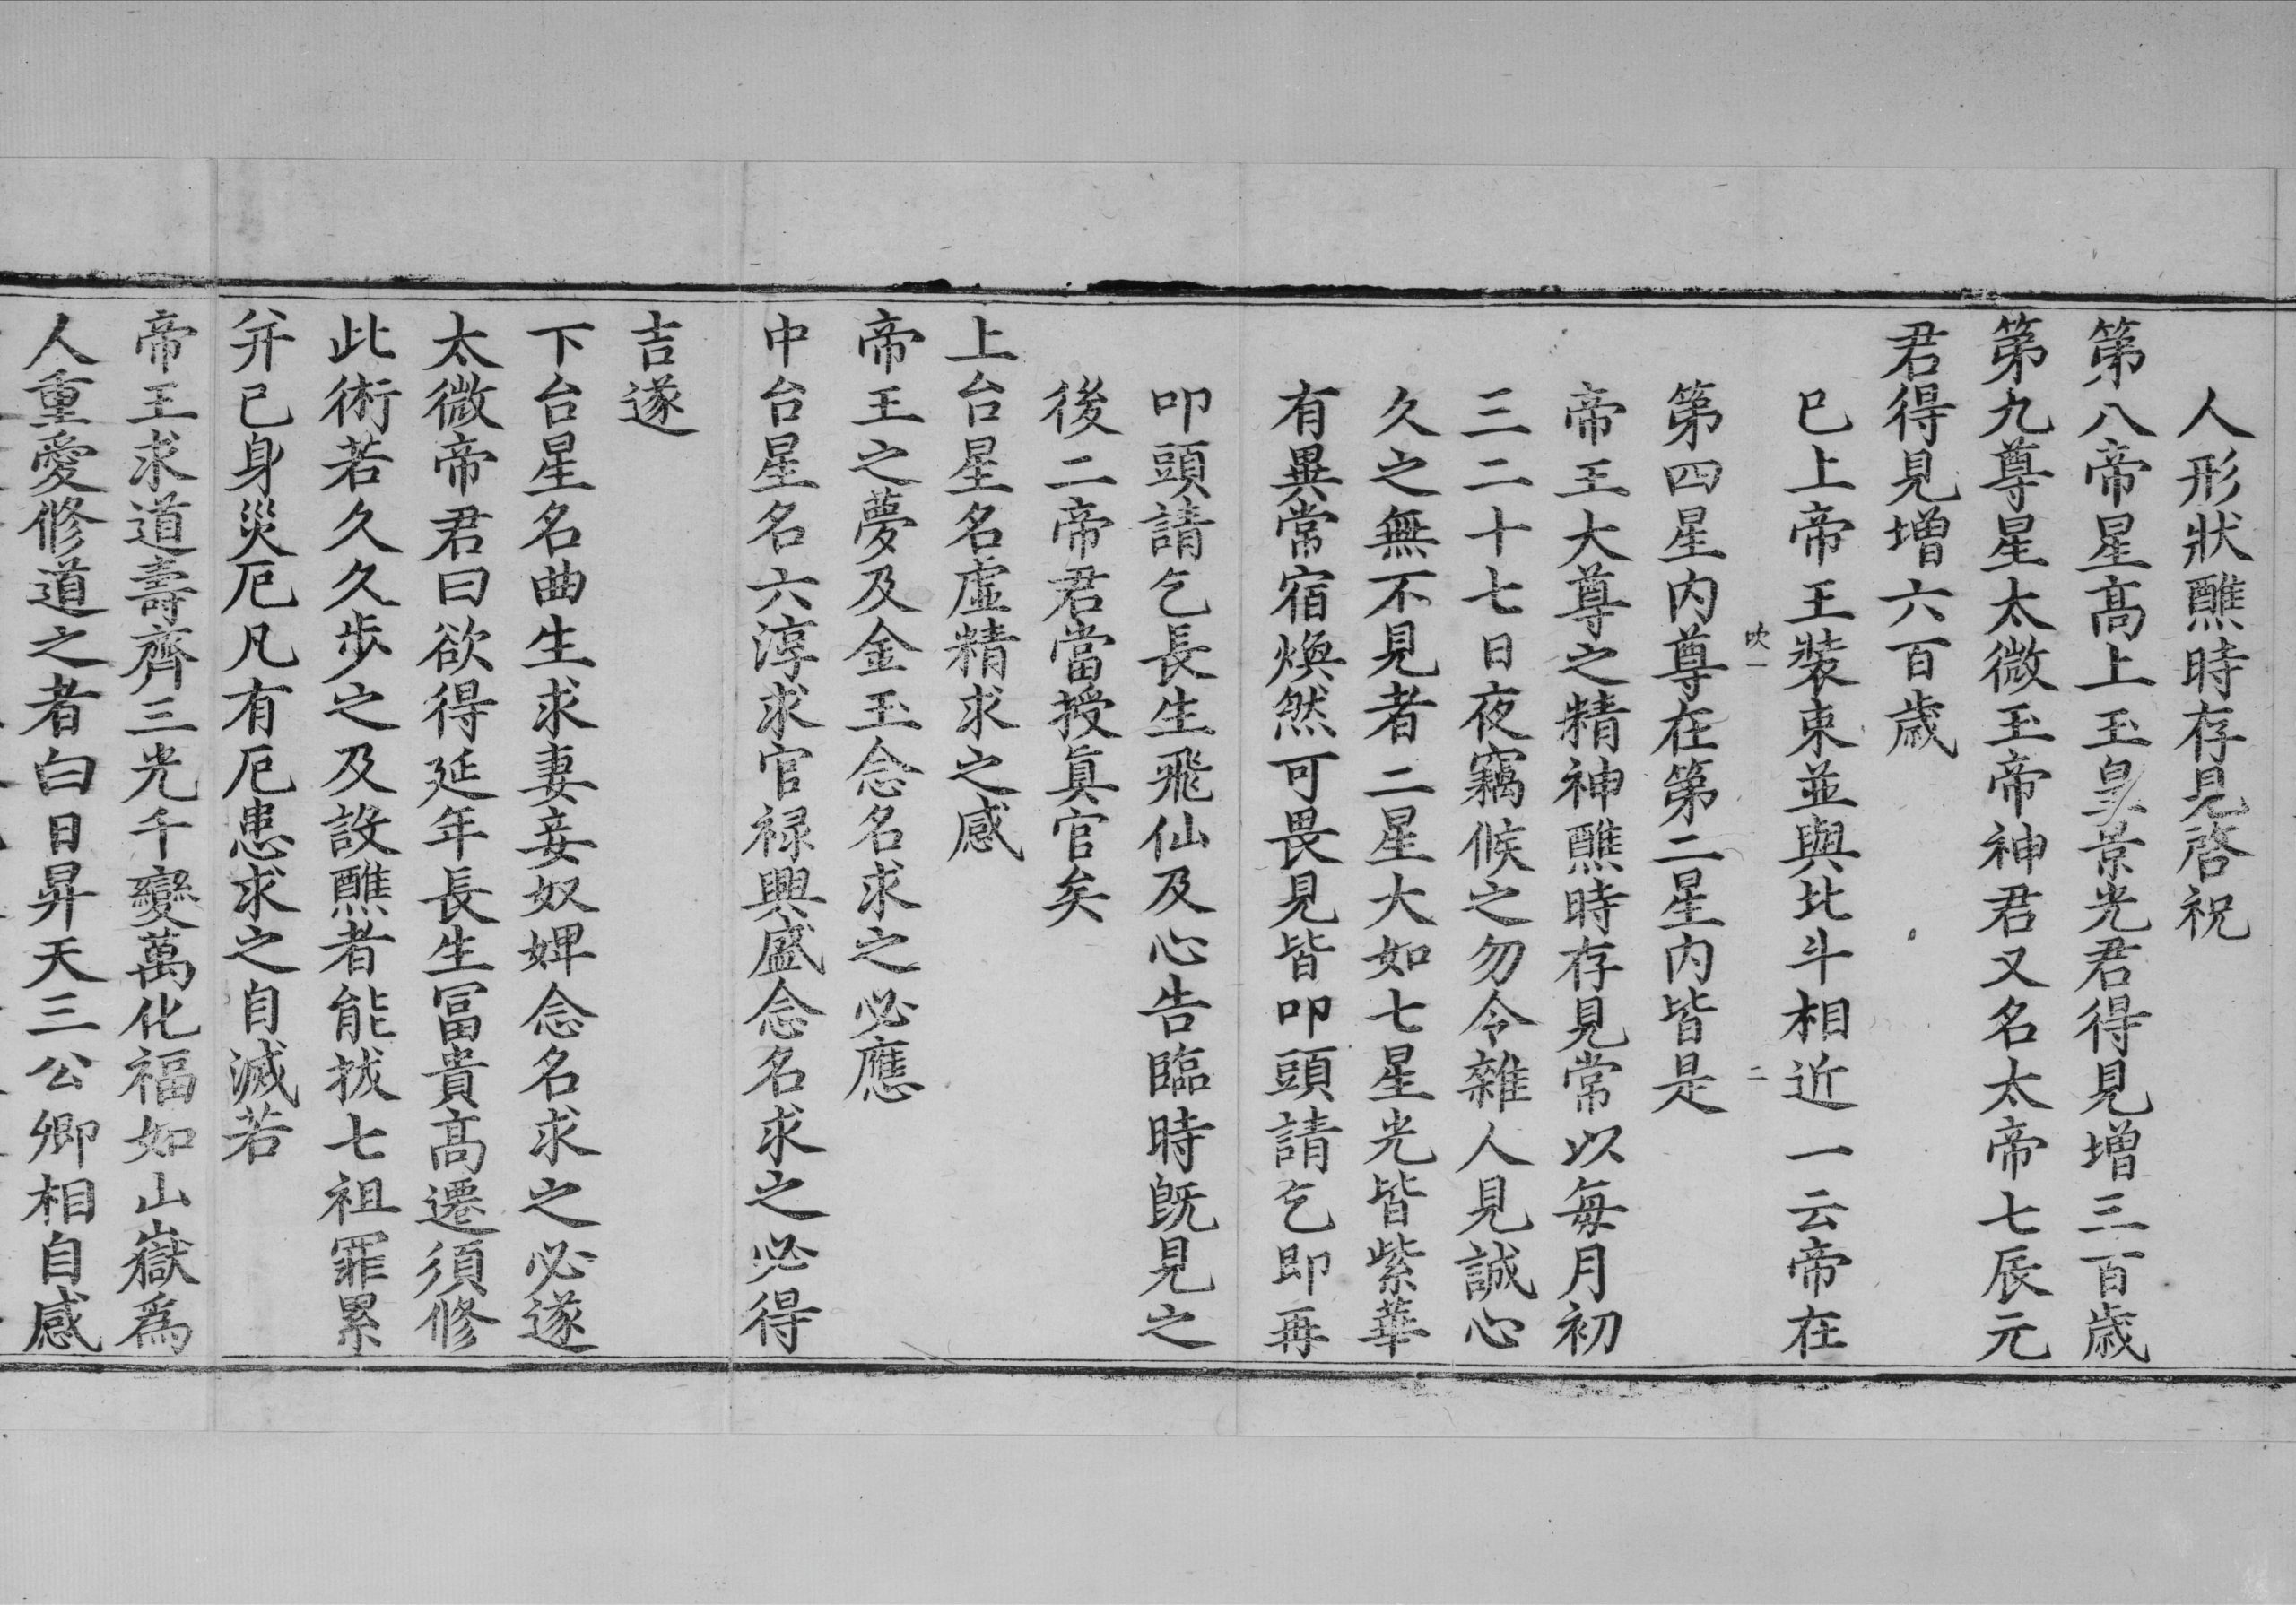 人形狀醮時存見啓祝
第八帝星髙上玉皇景光君得見增三百歳
第九尊星太微玉帝神君又名太帝七辰元
君得見增六百歳
巳上帝王裝束並與北斗相近一云帝在
吹一 二
第四星内尊在第二星内皆是
帝王大尊之精神醮時存見常以每月初
三二十七日夜竊候之勿令雜人見誠心
久之無不見者二星大如七星光皆紫華
有異常宿煥然可畏見皆叩頭請乞即再
叩頭請乞長生飛仙及心告臨時既見之
後二帝君當授真官矣
上台星名虛精求之感
帝王之夢及金玉念名求之必應
中台星名六淳求官禄興盛念名求之必得
吉遂
下台星名曲生求妻妾奴婢念名求之必遂
太微帝君曰欲得延年長生冨貴髙遷須修
此術若久久步之及設醮者能拔七祖罪累
并已身災厄凡有厄患求之自滅若
帝王求道壽齊三光千變萬化福如山嶽爲
人重愛修道之者白日昇天三公卿相自感